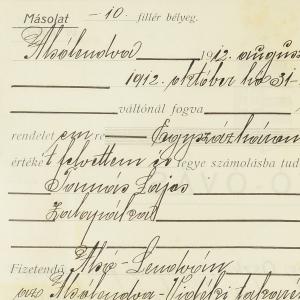 Másolat -10. fillér bélyeg.
Alsólendva 1912. augusz
1912. október hó 31-
váltónál fogva
rendelet em re Egyszázhárom
értéke t felvettem és tegye számolásba tud
Tamás Lajos
Zalagálsa
Fizetendő Alsó-Lendván
Alsólendva-Vidéki takaré